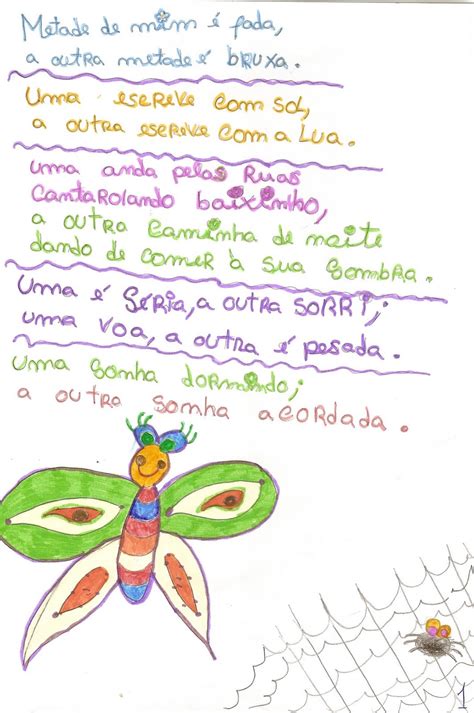 Metade de mim é fada,
a outra metade é bruxa.
Uma escreve com sol,
a outra escreve com a lua.
uma anda pelas Ruas
Cantarolando baixinho,
a outra caminha de noite
dando de comer à sua sombra.
Uma é séria, a outra SORRi;
uma voa, a outra é pesada.
uma sonha dormindo;
a outra sonha acordada.
1